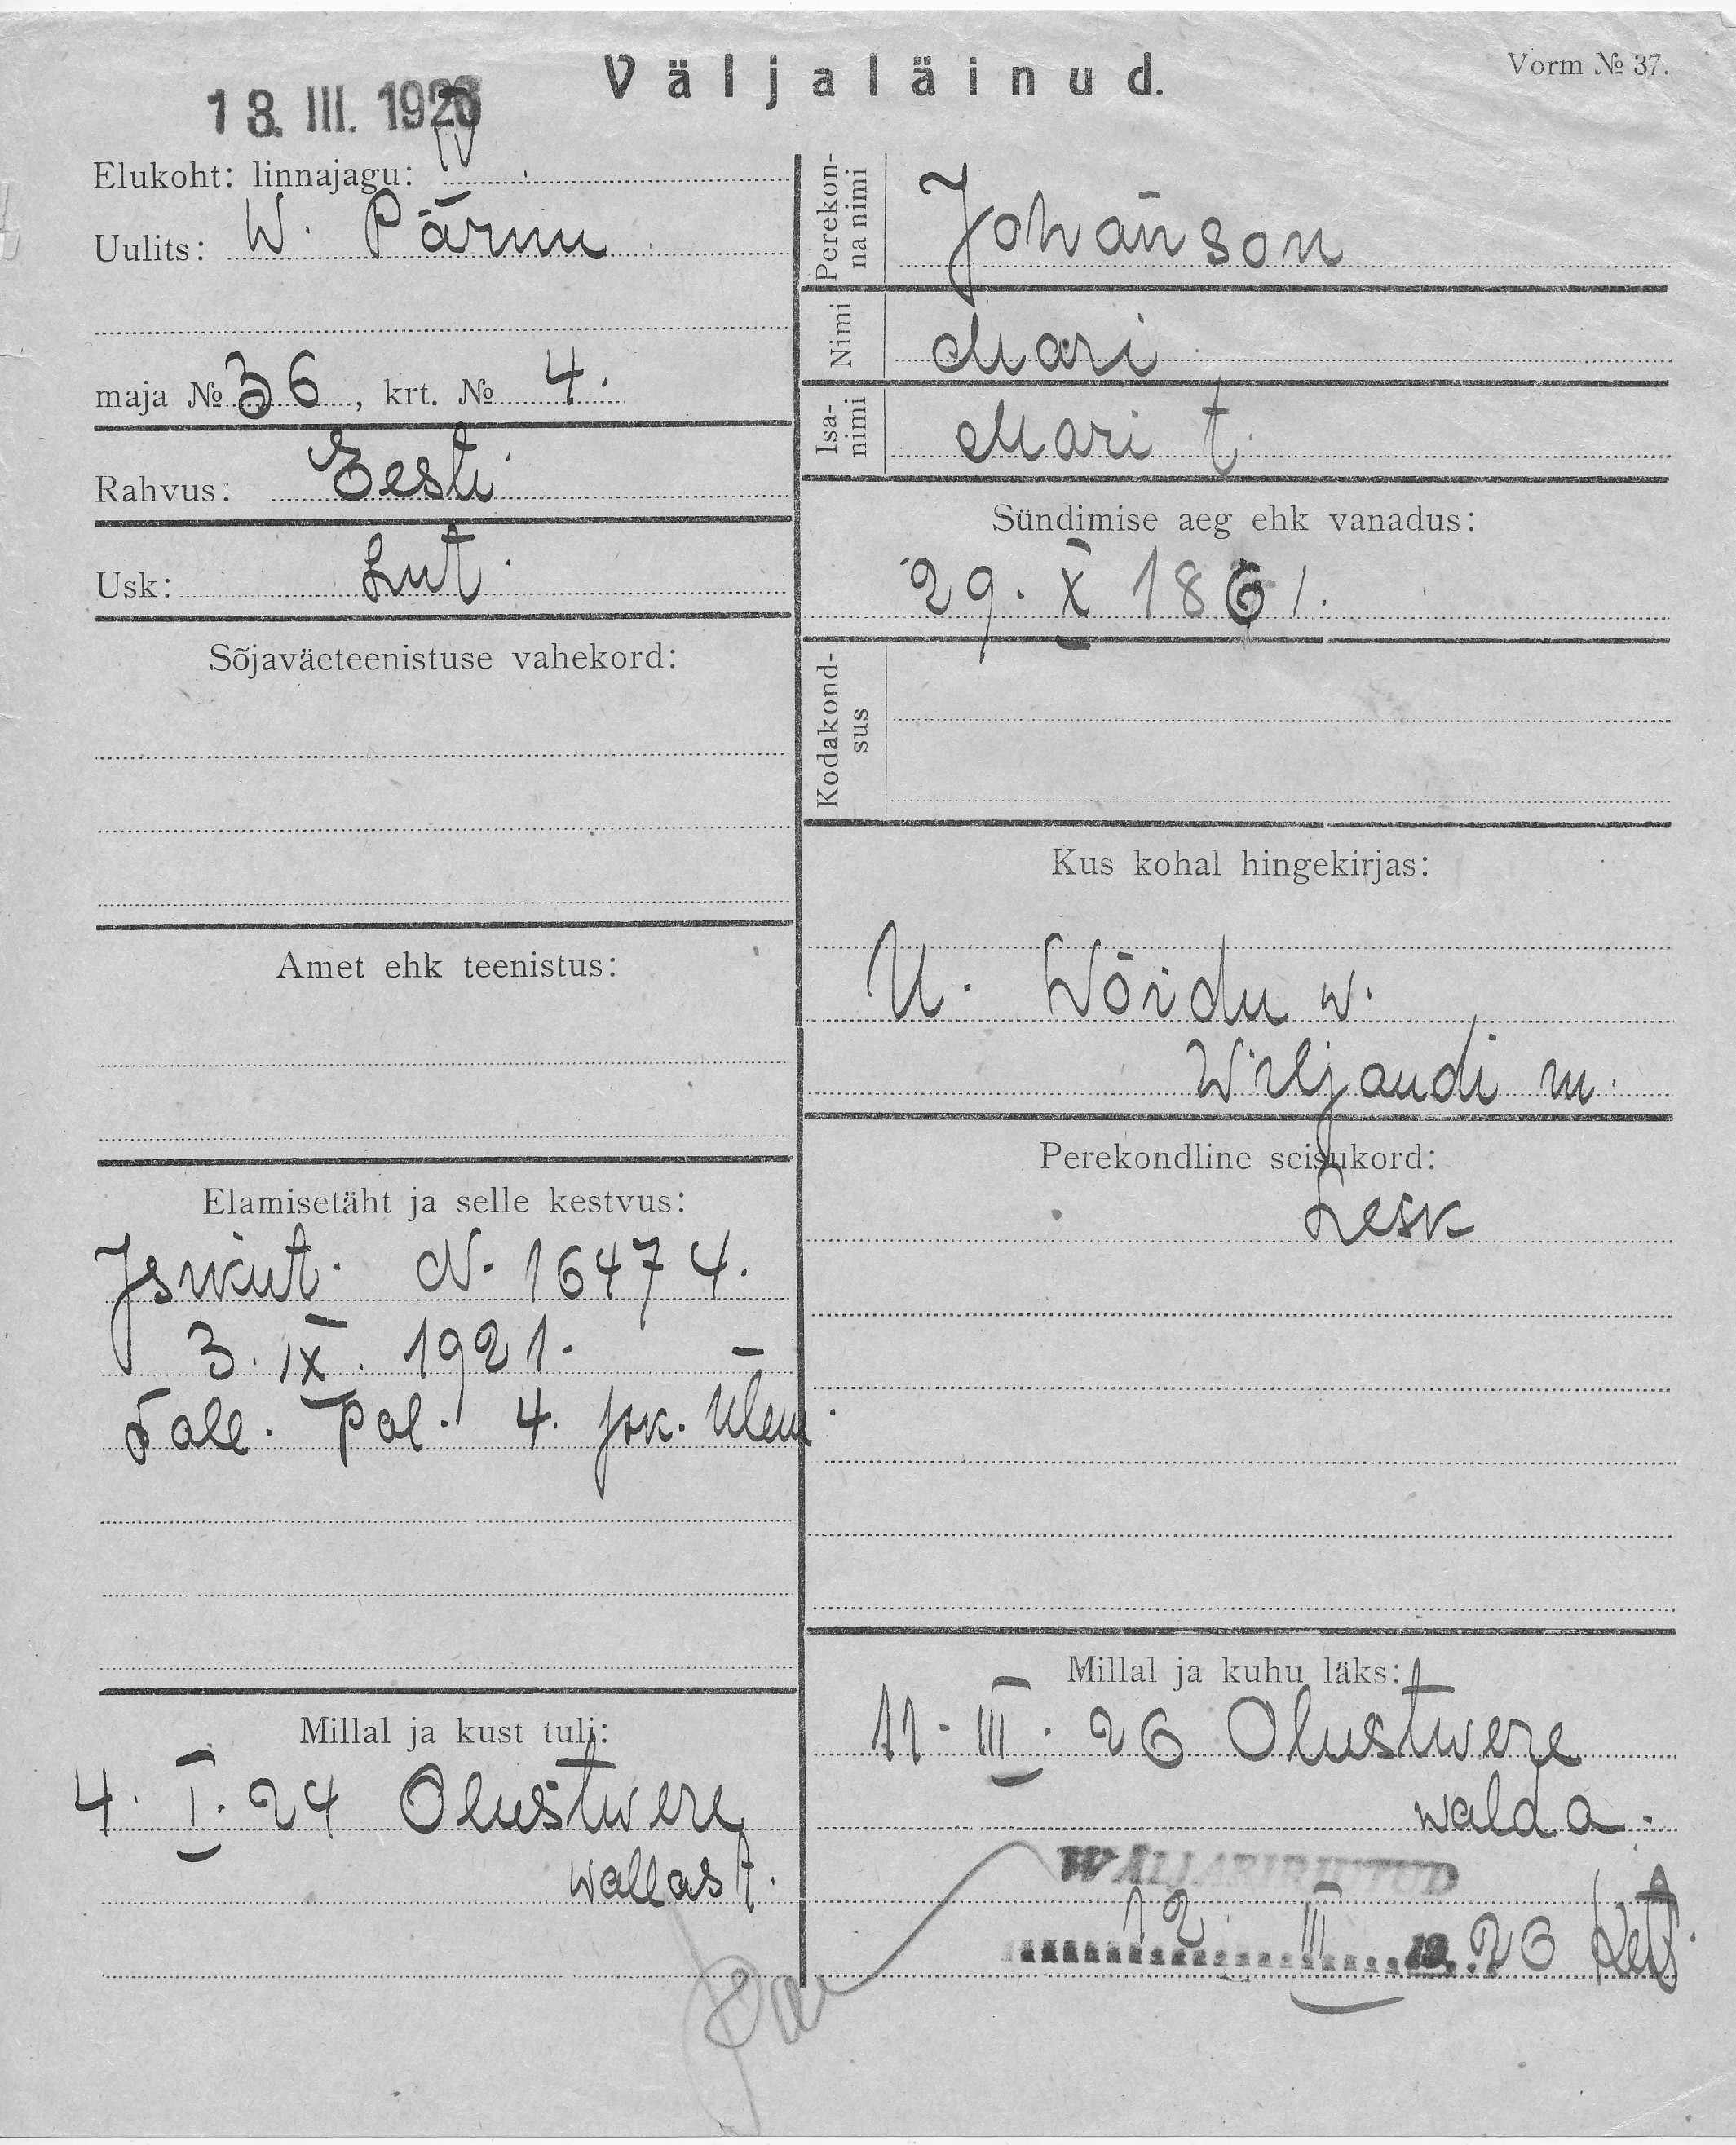 Väljaläinud.
Vorm № 37.
13. III. 1926
Elukoht: linnajagu: IV
Uulits: W. Pärnu
maja № 36, krt. № 4.
Rahvus: Eesti
Usk: Lut.
Sõjaväeteenistuse vahekord:
Amet ehk teenistus:
Elamisetäht ja selle kestvus:
Isikut. N. 16474.
3. IX. 1921.
Tall. Pol. 4. jsk. Ülem.
Millal ja kust tuli:
4. I. 24 Olustwere
wallast.
Perekon-
na nimi
Johanson
Nimi
Mari
Isa-
nimi
Mari t.
Sündimise aeg ehk vanadus:
29. X 1861.
Kodakond-
sus
Kus kohal hingekirjas:
U. Wõidu w.
Wiljandi m.
Perekondline seisukord:
Lesk
Millal ja kuhu läks:
11. III. 26 Olustwere
walda.
WÄLJAKIRJUTUD
12. III 1926